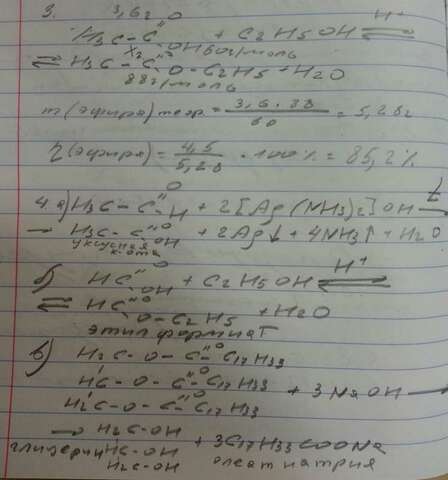 3. 3,6г O
H3C-C + C2H5OH H+ ⇌
X2 OH 60г/моль
⇌ H3C-C"O
O-C2H5 + H2O
88г/моль
m(эфира) теор. = 3,6 . 88 / 60 = 5,28г
η(эфира) = 4,5 / 5,28 . 100% = 85,2%
4. а) H3C-C"O-H + 2[Ag(NH3)2]OH t →
→ H3C-C"O OH + 2Ag↓ + 4NH3↑ + H2O
уксусная к-ота
б) HC"O OH + C2H5OH H+ ⇌
⇌ HC"O
O-C2H5 + H2O
этил формиат
в) H2C-O-C"O C17H33
HC-O-C"O C17H33 + 3NaOH →
H2C-O-C"O C17H33
→ H2C-OH
глицерин HC-OH + 3C17H33COONa
H2C-OH олеат натрия